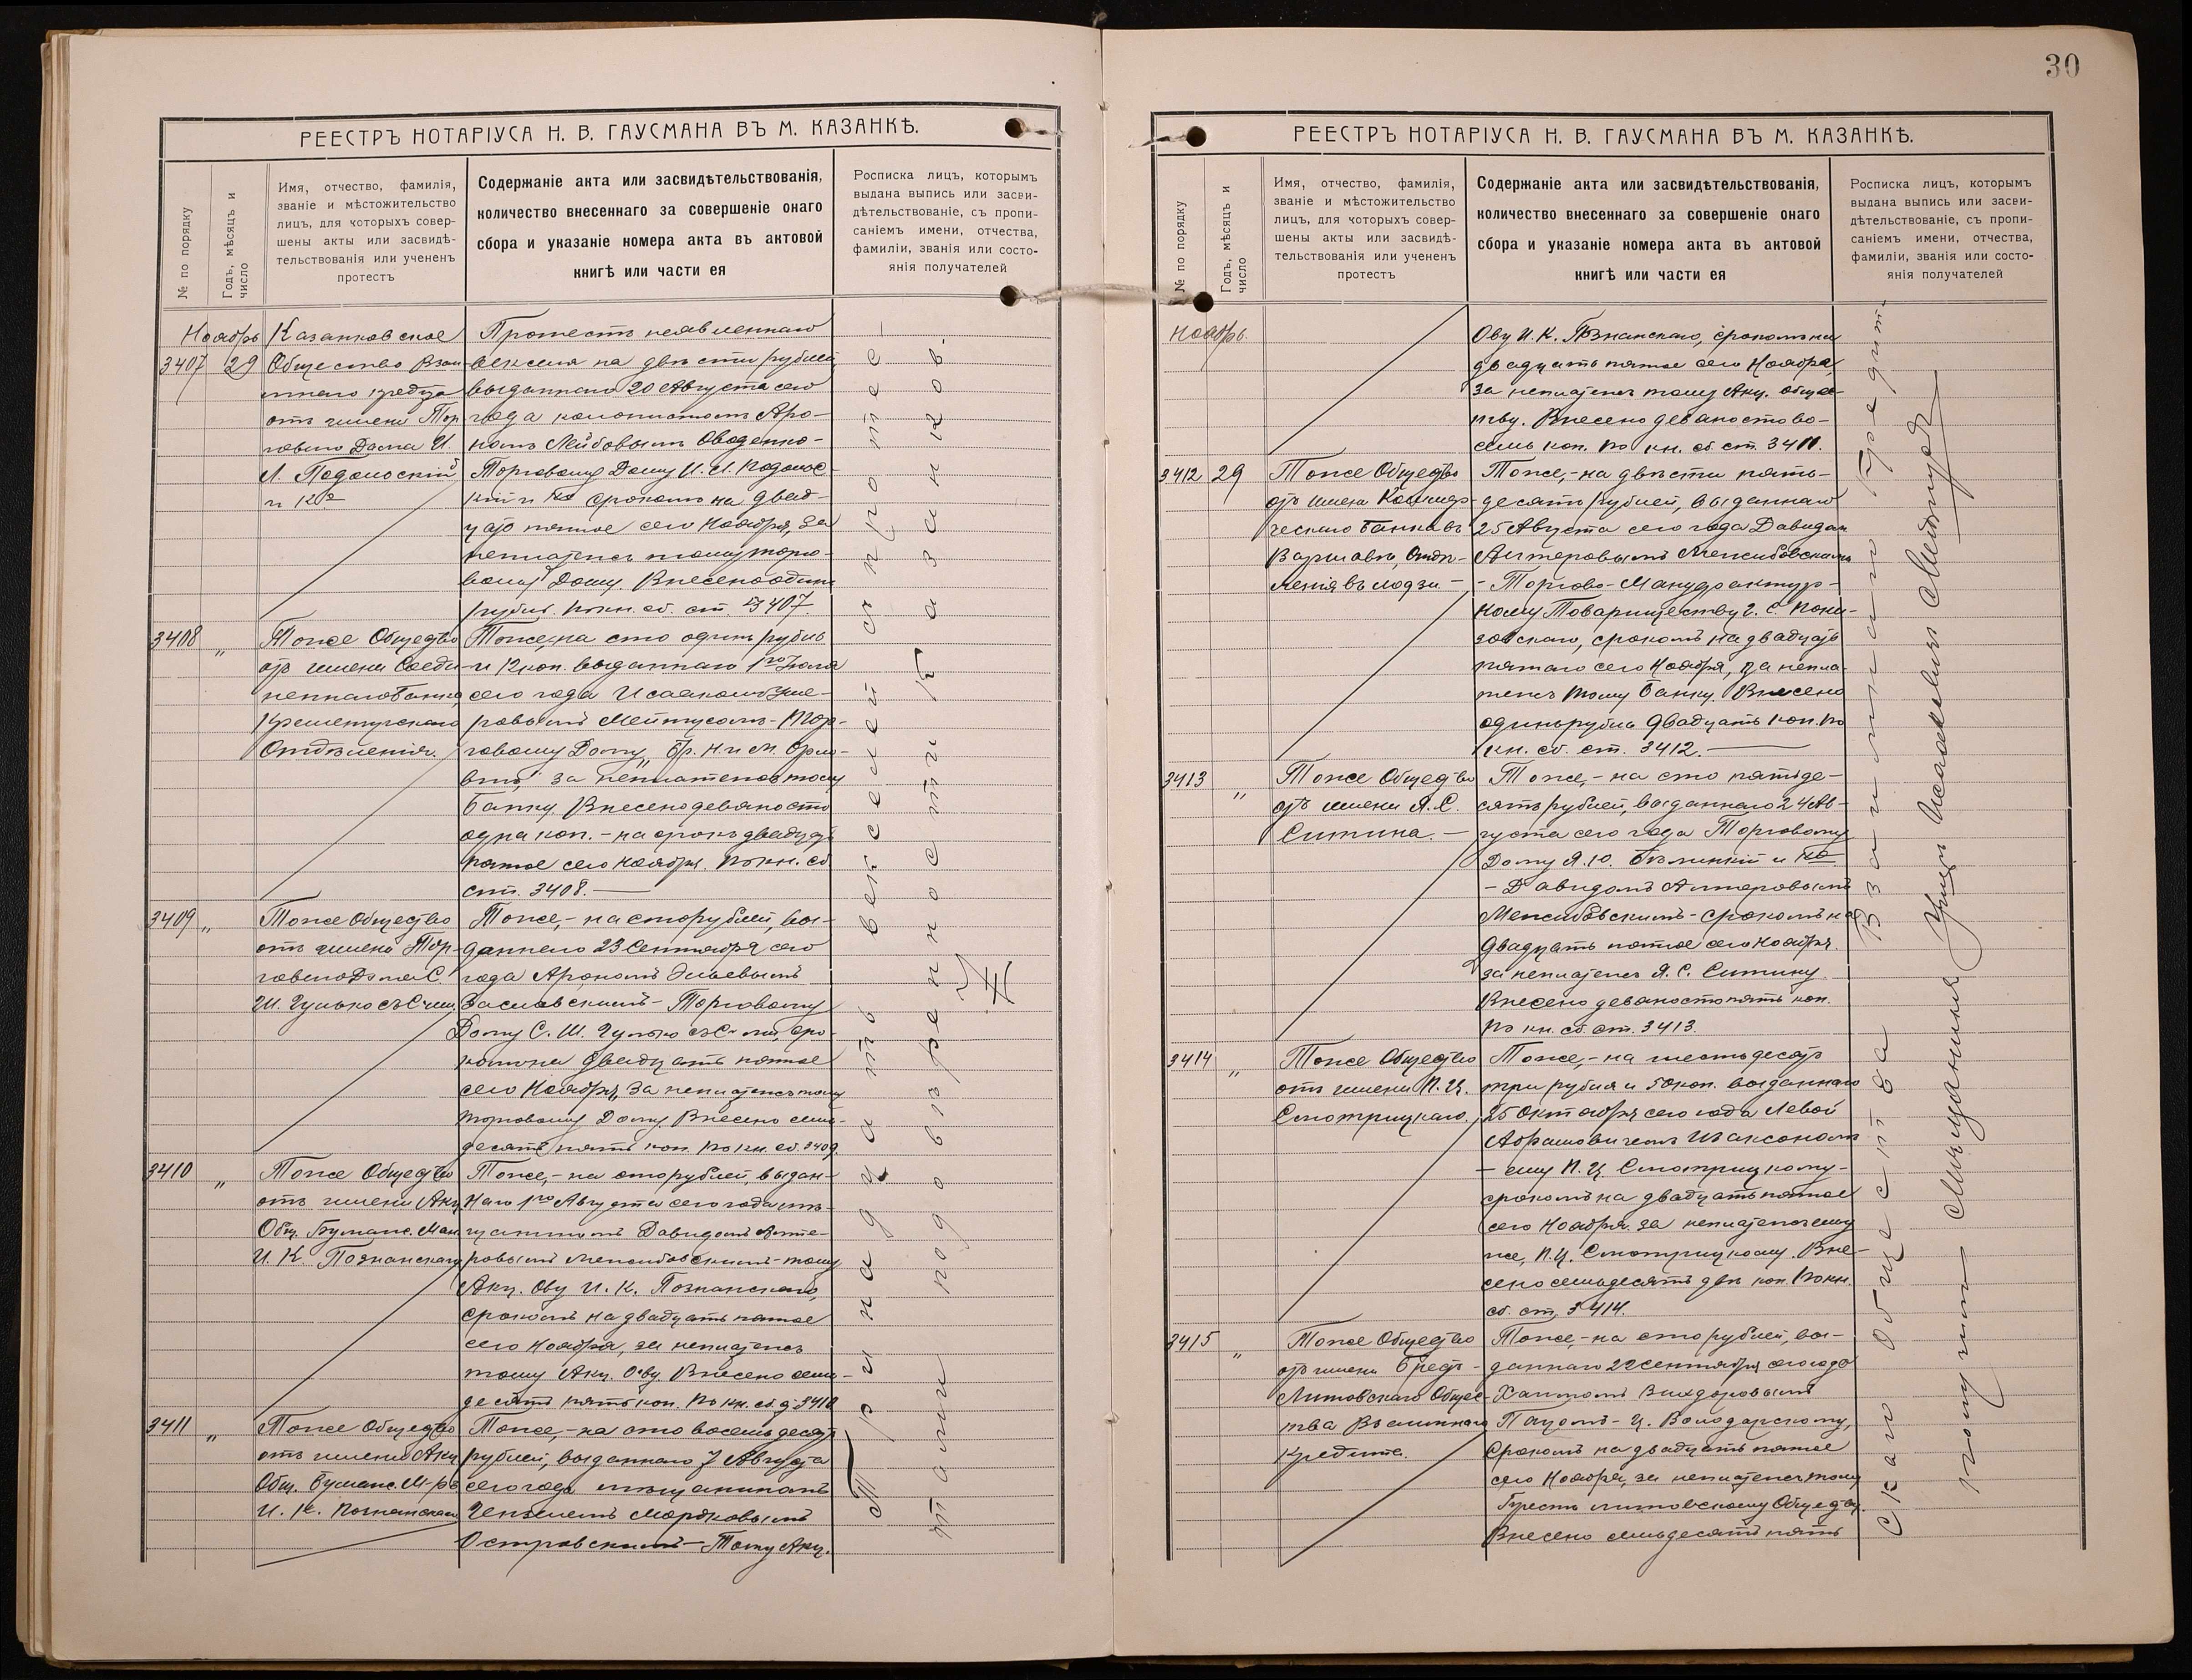 30
РЕЕСТРЪ НОТАРІУСА Н. В. ГАУСМАНА ВЪ М. КАЗАНКѢ.
№ по порядку
Годъ, мѣсяцъ и
число
Имя, отчество, фамилія,
званіе и мѣстожительство
лицъ, для которыхъ совер-
шены акты или засвидѣ-
тельствованія или учененъ
протестъ
Содержаніе акта или засвидѣтельствованія,
количество внесеннаго за совершеніе онаго
сбора и указаніе номера акта въ актовой
книгѣ или части ея
Росписка лицъ, которымъ
выдана выпись или засви-
дѣтельствованіе, съ пропи-
саніемъ имени, отчества,
фамиліи, званія или состо-
янія получателей
Ноябрь
3407 29
Казанковское
Общество Взаи
мнаго кредита
отъ имени Тор
говаго Дома И.
Л. Подольскій
и Ко
Протестъ неявленнаго
векселя на двѣсти рублей,
выданнаго 20 Августа сего
года колонистомъ Аро-
номъ Лейбовымъ
Торговому Дому И. Л. Подольс-
кій и Ко срокомъ на двад-
цать пятое сего Ноября, за
неплатежъ тому торго-
вому Дому. Внесено одинъ
рубль. По кн. сб. ст. 3407
3408 „
Тоже Общество
отъ имени Соеди-
неннаго Банка,
Кременчугскаго
Отдѣленія.
Тоже, на сто одинъ рубль
и 12 коп. выданнаго 1го Іюля
сего года Исаакомъ
Мейтусомъ - Тор-
говому Дому „Бр. Н. и М. Орло-
вы“, за неплатежъ тому
Банку. Внесено девяносто
одна коп. - на срокъ двадцать
пятое сего Ноября. По кн. сб.
ст. 3408. —
3409 „
Тоже Общество
отъ имени Тор-
говаго Дома С.
Ш. Гулько съ С-ми.
Тоже, - на сто рублей, вы-
даннаго 23 Сентября сего
года Арономъ
Заславскимъ - Торговому
Дому С. Ш. Гулько съ С-ми, сро-
комъ на двадцать пятое
сего Ноября, за неплатежъ тому
торговому Дому. Внесено семь-
десятъ пять коп. По кн. сб. 3409.
3410 „
Тоже Общество
отъ имени Акц
Общ. Бумаж. Ман
И. К. Познанскаго
Тоже, - на сто рублей, выдан-
наго 1го Августа сего года мѣ-
щаниномъ Давидомъ Алте-
ровымъ Менсибовскимъ - тому
Акц. Обву И. К. Познанскаго,
срокомъ на двадцать пятое
сего Ноября, за неплатежъ
тому Акц. Обву. Внесено семь-
десятъ пять коп. По кн. сб. 3410
3411 „
Тоже Общество
отъ имени Акц
Общ. Бумаж. М-ръ
И. К. Познанскаго
Тоже, - на сто восемьдесятъ
рублей, выданнаго 7 Августа
сего года мѣщаниномъ
Мордковымъ
Островскимъ - Тому Акц.
Тринадцать векселей съ протес-
тами повѣренности Казанков-
РЕЕСТРЪ НОТАРІУСА Н. В. ГАУСМАНА ВЪ М. КАЗАНКѢ.
№ по порядку
Годъ, мѣсяцъ и
число
Имя, отчество, фамилія,
званіе и мѣстожительство
лицъ, для которыхъ совер-
шены акты или засвидѣ-
тельствованія или учененъ
протестъ
Содержаніе акта или засвидѣтельствованія,
количество внесеннаго за совершеніе онаго
сбора и указаніе номера акта въ актовой
книгѣ или части ея
Росписка лицъ, которымъ
выдана выпись или засви-
дѣтельствованіе, съ пропи-
саніемъ имени, отчества,
фамиліи, званія или состо-
янія получателей
Ноябрь.
Обву И. К. Познанскаго, срокомъ на
двадцать пятое сего Ноября,
за неплатежъ тому Акц. общес-
тву. Внесено девяносто во-
семь коп. По кн. сб. ст. 3411.
3412 29
Тоже Общество
отъ имени Коммер-
ческаго Банка въ
Варшавѣ, Отдѣ-
ленія въ Лодзи. -
Тоже, - на двѣсти пять-
десятъ рублей, выданнаго
25 Августа сего года Давидомъ
Алтеровымъ Менсибовскимъ
- Торгово-Мануфактур-
ному Товариществу
срокомъ на двадцать
пятаго сего Ноября, за непла-
тежъ тому Банку. Внесено
одинъ рубль двадцать коп. По
кн. сб. ст. 3412. —
3413 „
Тоже Общество
отъ имени Я. С.
Ситина. -
Тоже, - на сто пятьде-
сятъ рублей, выданнаго 24 Ав-
густа сего года Торговому
Дому Я. Ю. Бѣлицкій и Ко
- Давидомъ Алтеровымъ
Менсибовскимъ - срокомъ на
двадцать пятое сего Ноября.
за неплатежъ Я. С. Ситину.
Внесено девяносто пять коп.
По кн. сб. ст. 3413.
3414 „
Тоже Общество
отъ имени П. Ц.
Смотрицкаго.
Тоже, - на шестьдесятъ
три рубля и 50 коп. выданнаго
25 Октября сего года Левой
Абрамовичемъ Исаксономъ
- ему П. Ц. Смотрицкому -
срокомъ на двадцать пятое
сего Ноября за неплатежъ ему
же, П. Ц. Смотрицкому. Вне-
сено семьдесятъ двѣ коп. По кн.
сб. ст. 3414.
3415 „
Тоже Общество
отъ имени Брестъ-
Литовскаго Общес-
тва Взаимнаго
Кредита.
Тоже, - на сто рублей, вы-
даннаго 22 Сентября сего года
Хаимомъ
- Ц. Володарскому,
срокомъ на двадцать пятое
сего Ноября, за неплатежъ тому
Брестъ Литовскому Обществу.
Внесено семьдесятъ пять
скаго Общества Взаимнаго Кредита
получилъ — Мѣщанинъ Ушеръ Исааковъ Мейтусъ